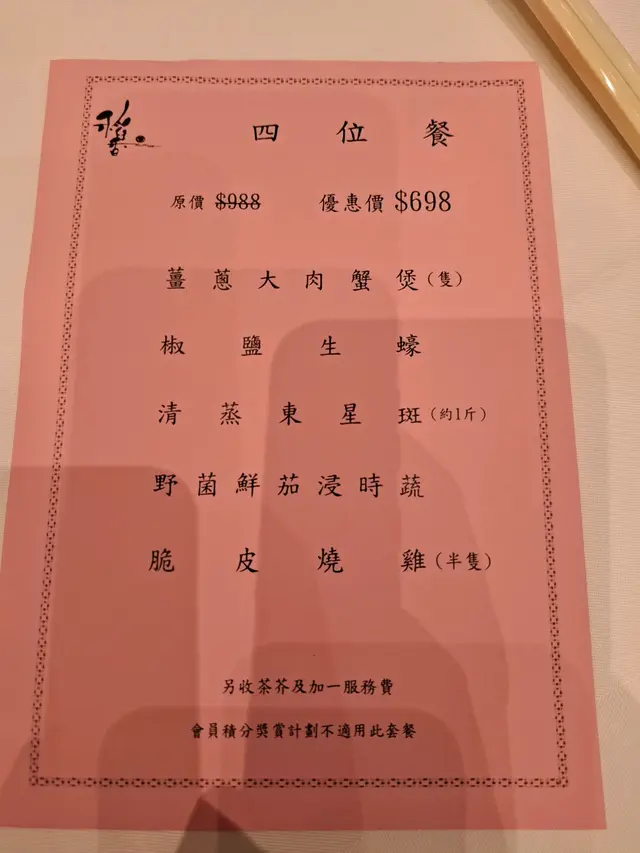 四位餐
原價 $988 優惠價 $698
薑蔥大肉蟹煲(隻)
椒鹽生蠔
清蒸東星斑(約1斤)
野菌鮮茄浸時蔬
脆皮燒雞(半隻)
另收茶芥及加一服務費
會員積分獎賞計劃不適用此套餐